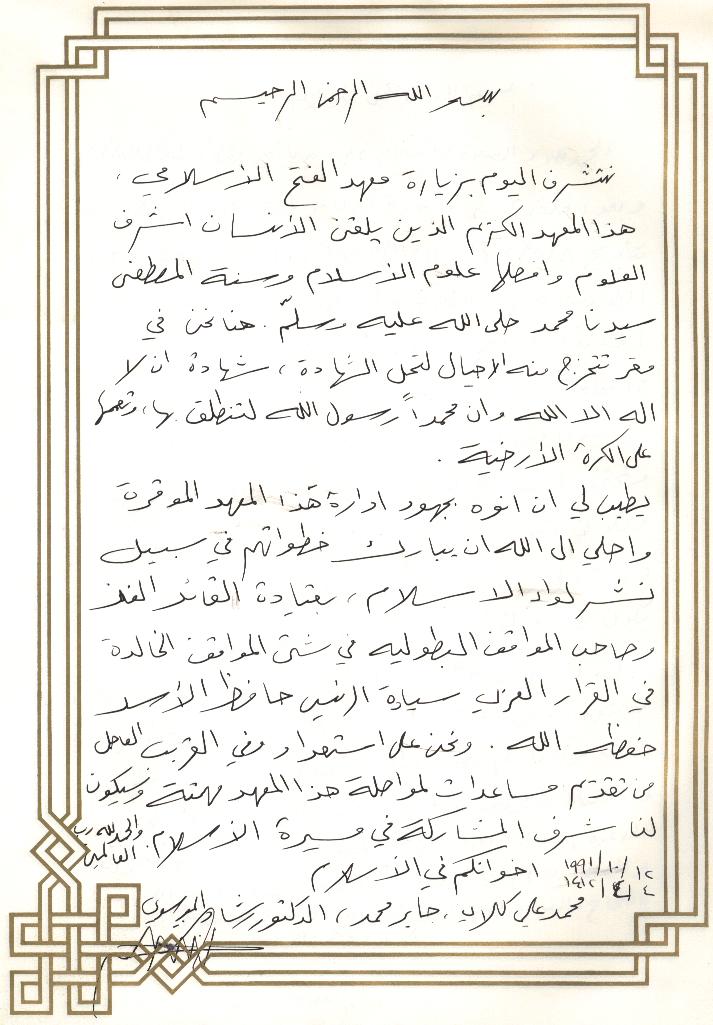 بسم الله الرحمن الرحيم
نتشرف اليوم بزيارة معهد الفتح الأسلامي،
هذا المعهد الكريم الذين يلقن الأنسان اشرف
العلوم وافضلها علوم الأسلام وسنة المصطفى
سيدنا محمد صلى الله عليه وسلّم. هنا نحن في
مقر تتخرج منه الاجيال لتحمل الشهادة، شهادة ان لا
اله الا الله وان محمداً رسول الله لتنطلق بها، وتعمها
على الكرة الأرضية.
يطيب لي ان انوه بجهود ادارة هذا المعهد الموقرة
واصلي الى الله ان يبارك خطواتهم في سبيل
نشر لواء الاسلام، بقيادة القائد الفذ
وصاحب المواقف البطوليه في شتى المواقف الخالدة
في القرار العربي سيادة الرئيس حافظ الأسد
حفظه الله. ونحن على استعداد وفي القريب العاجل
من تقديم مساعدات لمواصلة هذا المعهد مهمته وسيكون
لنا شرف المشاركة في مسيرة الأسلام. والحمد لله رب العالمين
اخوانكم في الأسلام
١٢/١٠/١٩٩١
٤/٤/١٤١٢
محمد علي كلاب، جابر محمد، الدكتور رشاد